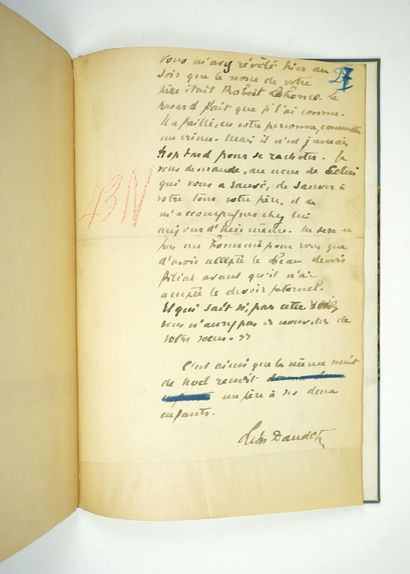 vous m'avez révélé hier au
27
soir que le nom de votre
père était Robert Le
hasard fait que je l'ai connu.
Il a failli, en votre personne, commettre
un crime. Mais il n'est jamais
trop tard pour se racheter. Je
vous demande, au nom de Celui
qui vous a sauvé, de sauver à
votre tour votre père, et de
m'accompagner chez lui
aujourd'hui même. Ce sera
pas un pour vous que
d'avoir accepté le beau devoir
filial avant qu'il n'ait
accepté le devoir paternel.
Et qui sait si, par cette
vous n'aurez pas de nouvelles de
votre soeur. »
43N
C'est ainsi que la même nuit
de Noel rendit
un père à ses deux
enfants.
Léon Daudet